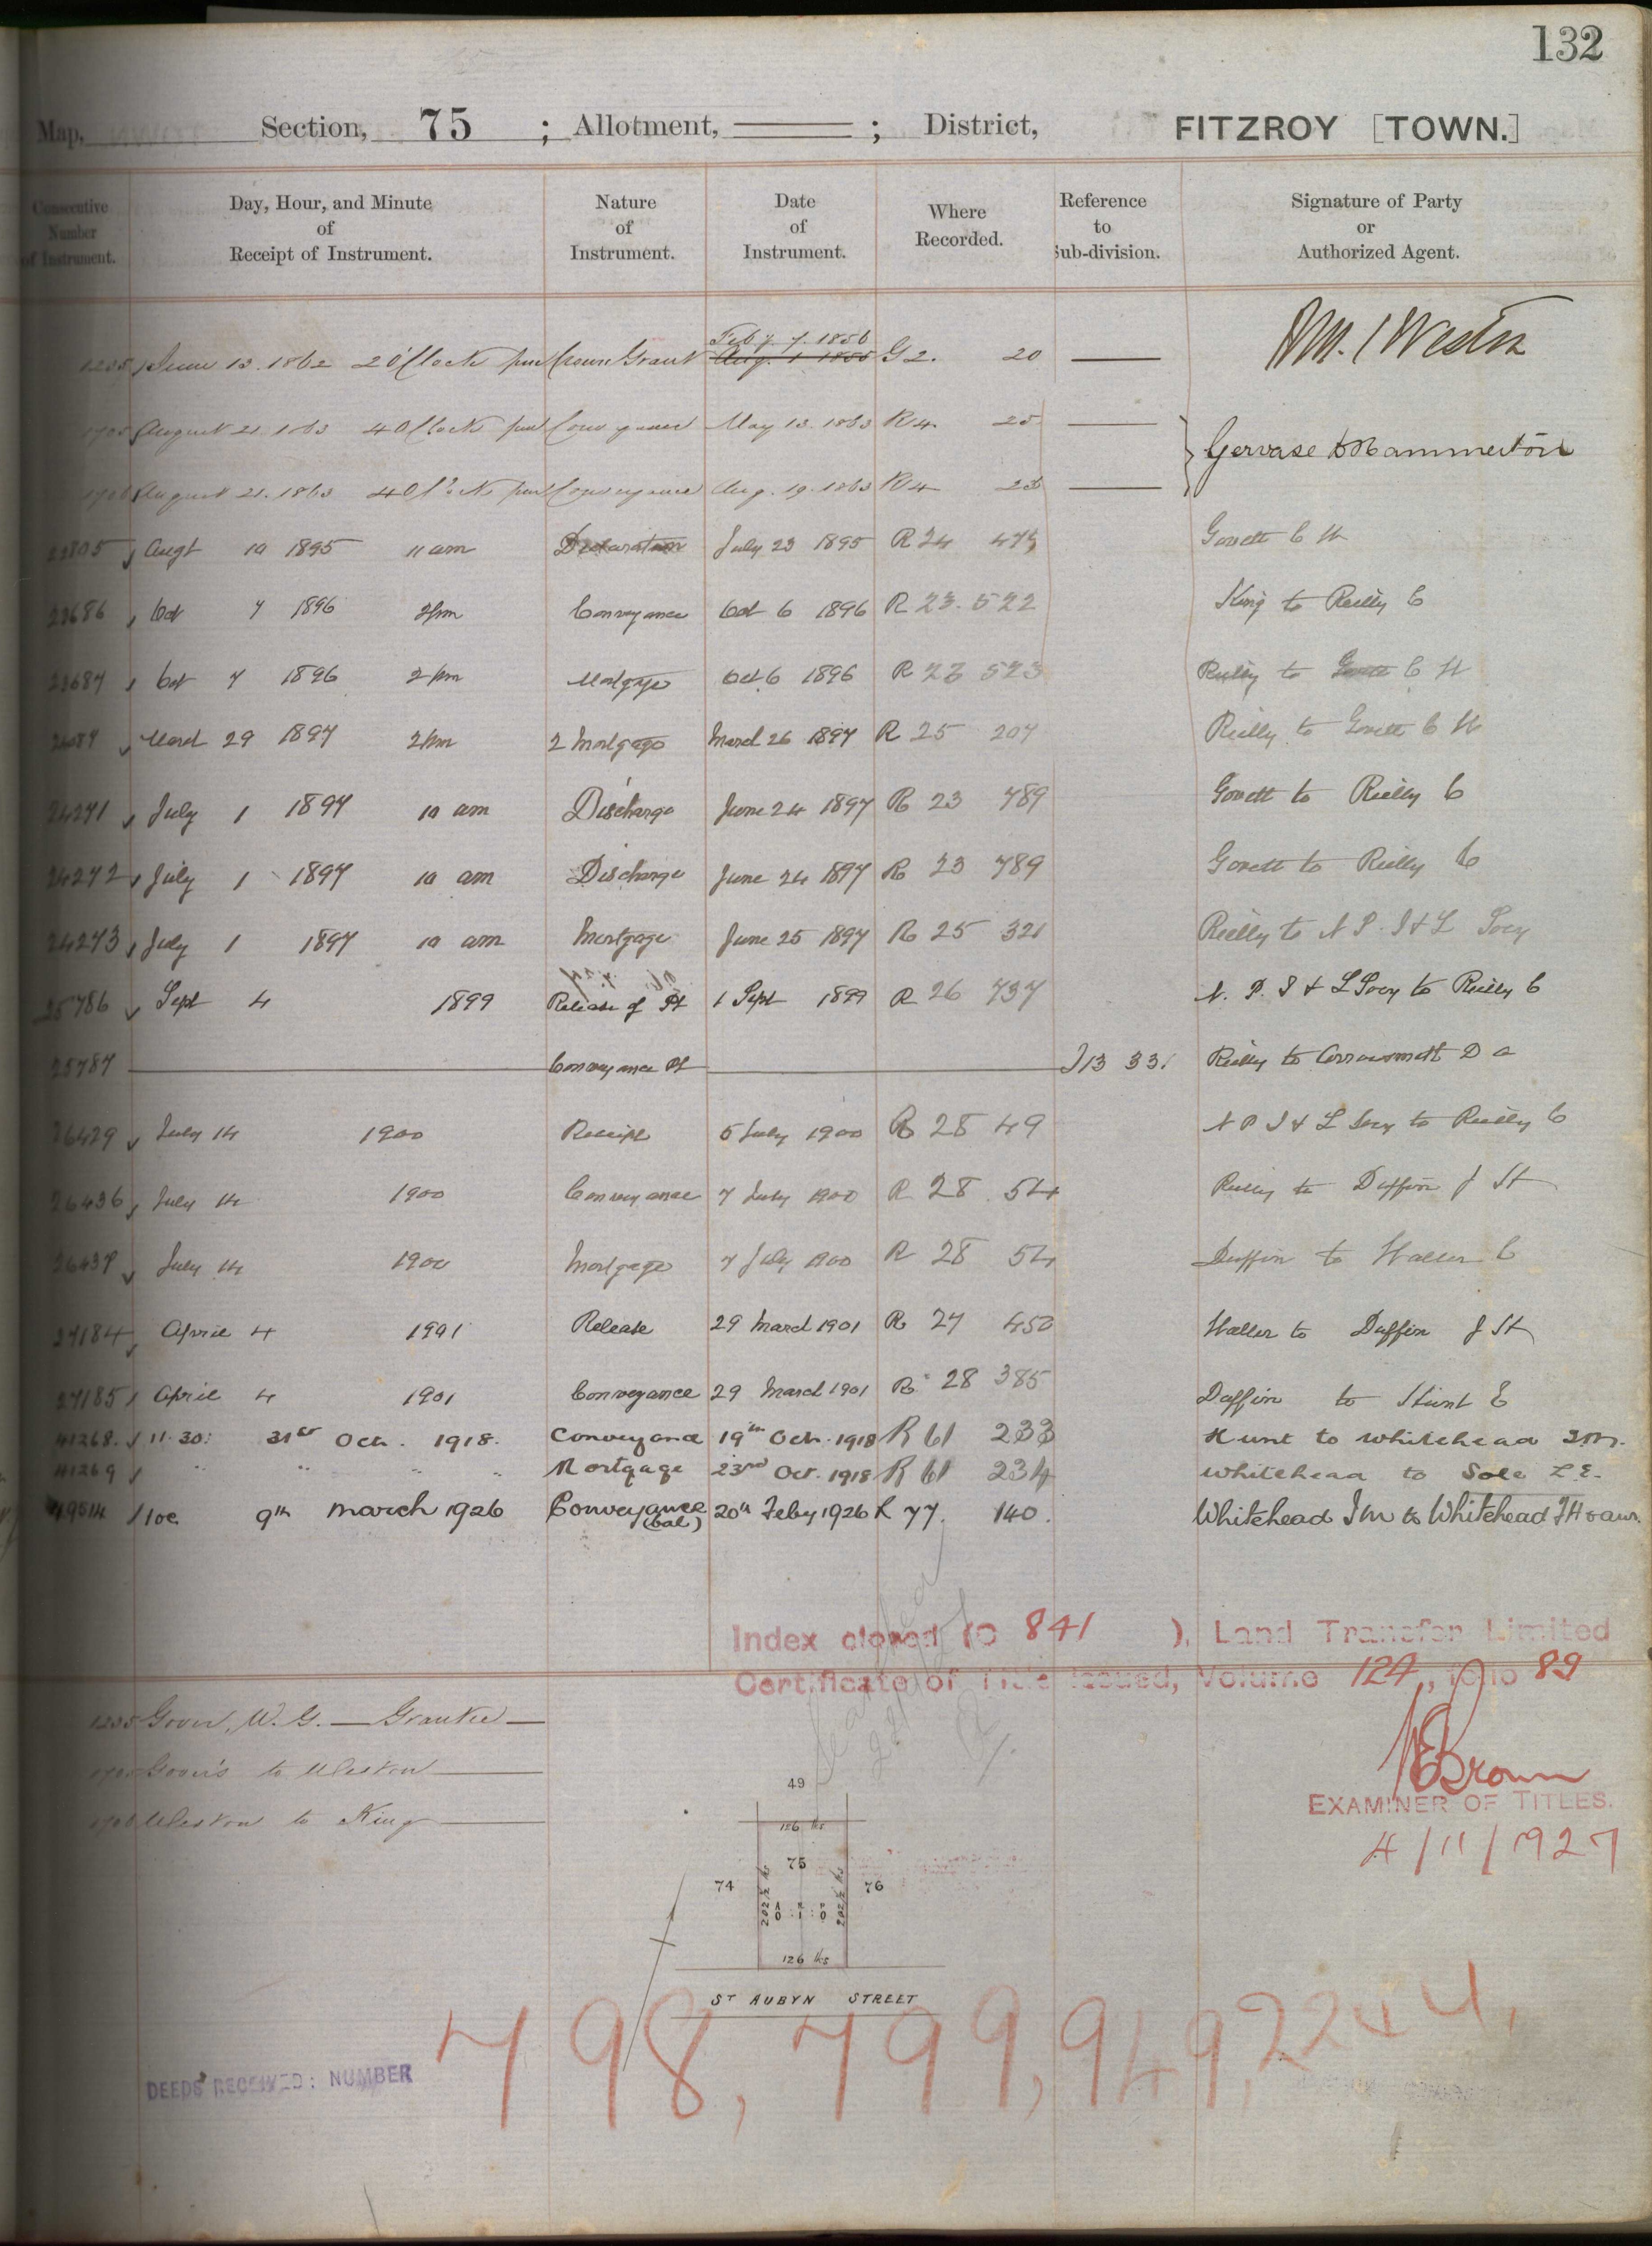 132
Map, Section, 75 ; Allotment, ; District, FITZROY [TOWN.]
Consecutive Number of Instrument.
Day, Hour, and Minute of Receipt of Instrument.
Nature of Instrument.
Date of Instrument.
Where Recorded.
Reference to Sub-division.
Signature of Party or Authorized Agent.
Feby. 7. 1856
1235 June 13. 1862 2 O'Clock pm Crown Grant Aug. 1 1855 G 2. 20
August 21. 1863 4 O'Clock pm Conveyance May 13. 1863 R 4. 25
Gervase D Hammerton
August 21. 1863 4 O'Clock pm Conveyance Aug. 19. 1863 R 4
22805 Augt 10 1895 11 am Declaration July 23 1895 R 24 Govett C H
23686 Oct 7 1896 2 pm Conveyance Oct 6 1896 R 23. 522 King to Reilly C
23687 Oct 7 1896 2 pm Mortgage Oct 6 1896 R 23 523 Reilly to Govett C H
March 29 1897 2 pm 2 Mortgage March 26 1897 R 25 207 Reilly to Govett C H
24271 July 1 1897 10 am Discharge June 24 1897 R 23 789 Govett to Reilly C
24272 July 1 1897 10 am Discharge June 24 1897 R 23 789 Govett to Reilly C
24273 July 1 1897 10 am Mortgage June 25 1897 R 25 321 Reilly to N P. I & L Socy
25786 Sept 4 1899 Release of Pt 1 Sept 1899 R 26 737 N. P. I & L Socy to Reilly C
25787 Conveyance Pt I 13 331 Reilly to Arrowsmith D A
26429 July 14 1900 Receipt 5 July 1900 R 28 49 N P I & L Socy to Reilly C
26436 July 14 1900 Conveyance 7 July 1900 R 28 54 Reilly to Duffin J St
26437 July 14 1900 Mortgage 7 July 1900 R 28 54 Duffin to Haller C
27184 April 4 1901 Release 29 March 1901 R 27 450 Haller to Duffin J St
27185 April 4 1901 Conveyance 29 March 1901 R 28 385 Duffin to Hunt E
41268. 11.30: 31st Oct. 1918. Conveyance 19th Oct. 1918 R 61 233 Hunt to Whitehead I M.
41269 " " " " Mortgage 23rd Oct. 1918 R 61 234 Whitehead to Sole L E.
49514 10c 9th March 1926 Conveyance (bal) 20th Feby 1926 R 77. 140. Whitehead I M to Whitehead I H & anr.
Index closed (C 841 ), Land Transfer Limited
Certificate of Title issued, Volume 124, folio 89
1235 Govr, W. G. — Grantee —
to Weston
Weston to King
EXAMINER OF TITLES.
4/11/1927
49
126 lks
75
74
76
202½ lks
202½ lks
A R P
0 : 1 : 0
126 lks
ST AUBYN STREET
DEEDS RECEIVED: NUMBER
798, 799, 949, 2244,